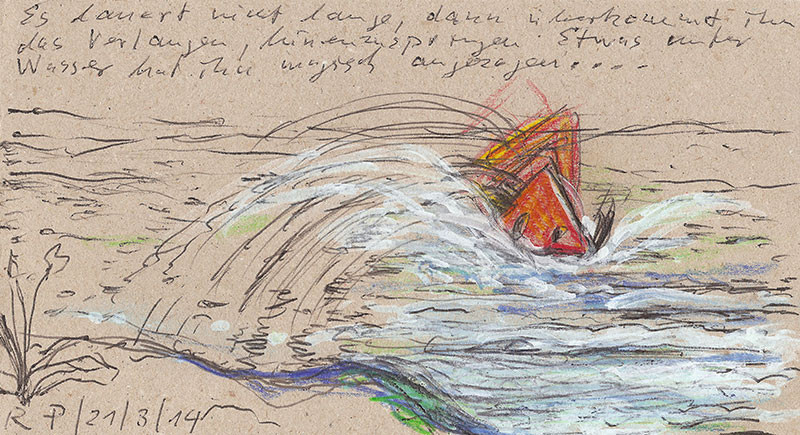 Es dauert nicht lange, dann überkommt ihn
das Verlangen, hineinzuspringen. Etwas unter
Wasser hat ihn magisch angezogen....
RP/21/3/14